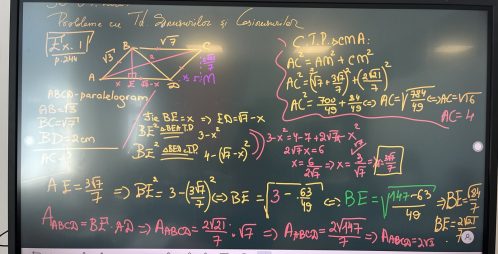 Probleme cu Td. Sinusurilor și Cosinusurilor
Ex. 1
p.244
B √7 C
√3 2
A x E √7-x D M
ABCD-paralelogram
AB=√3
BC=√7
BD=2cm
AC=?
Fie BE=x => ED=√7-x
BE² ΔBEA T.P. 3-x²
BE² ΔBED T.P. 4-(√7-x)²
3-x²=4-7+2√7x-x²
2√7x=6
x=6/2√7 => x=3/√7 => x=3√7/7
C.T.P. ΔCMA:
AC²=AM²+CM²
AC²=(√7+3√7/7)²+(2√21/7)²
AC²=700/49+84/49 <=> AC=√784/49 <=> AC=√16
AC=4
AE=3√7/7 => BE²=3-(3√7/7)² <=> BE=√3-63/49 <=> BE=√147-63/49 => BE=√84/7
BE=2√21/7
A ABCD=BE·AD => A ABCD=2√21/7·√7 => A ABCD=2√147/7 => A ABCD=2√3